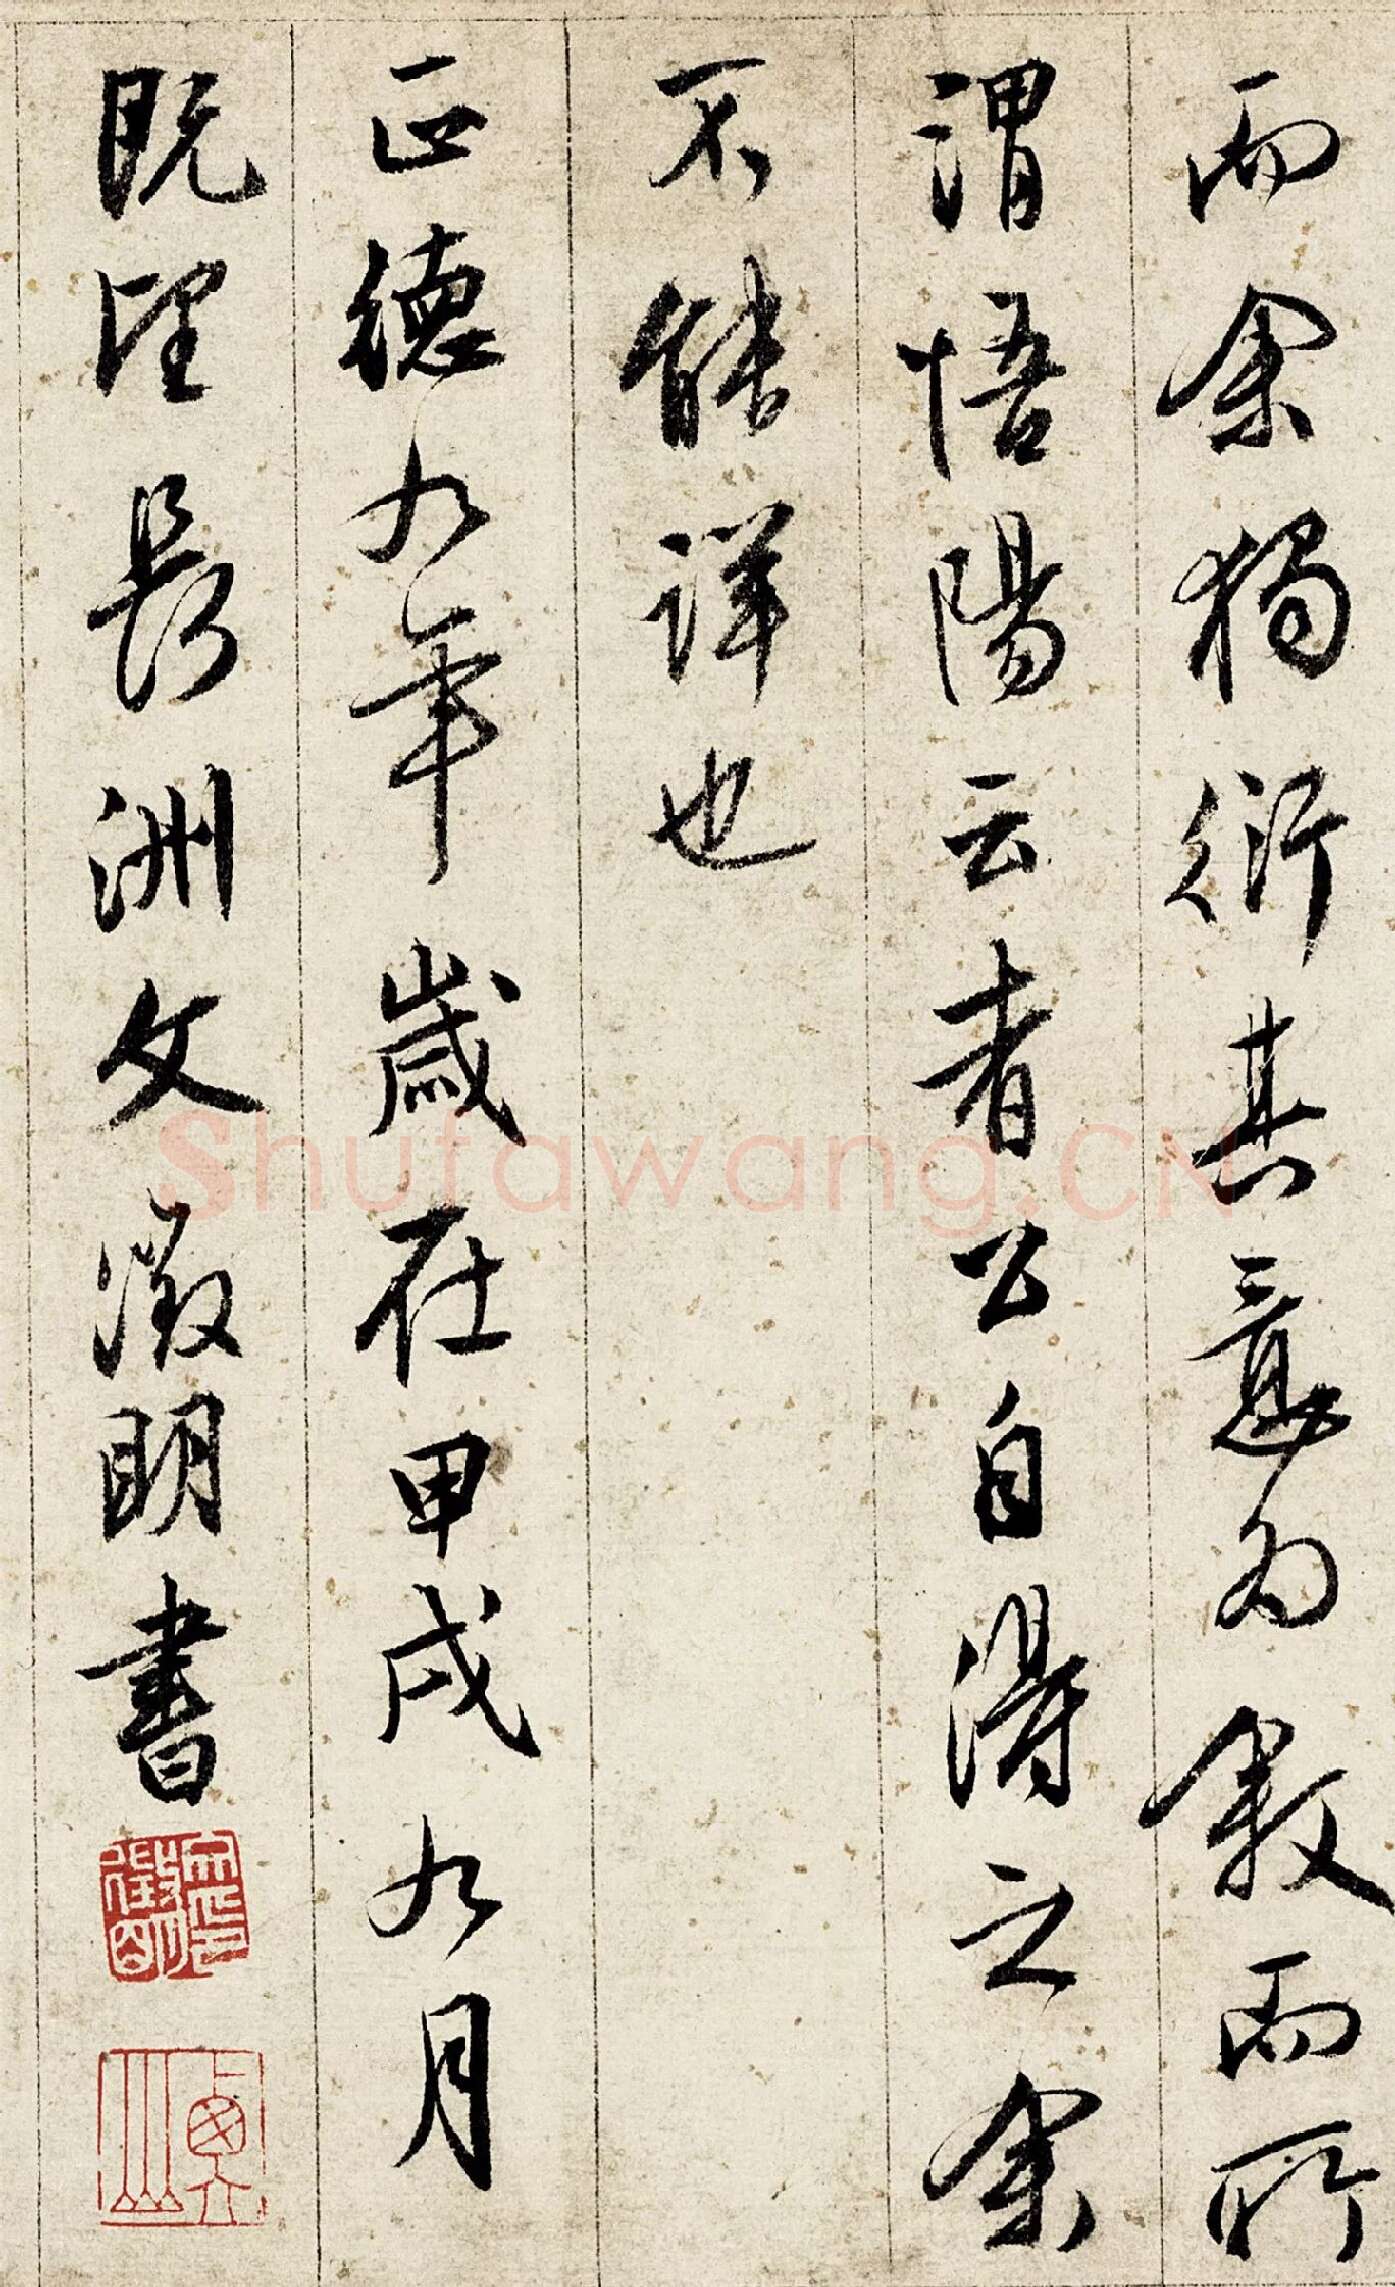 而余獨衍其意為敘而所
謂悟陽云者公自得之余
不能詳也
正德九年歲在甲戌九月
既望長洲文徵明書
文徵明印
Shufawang.CN